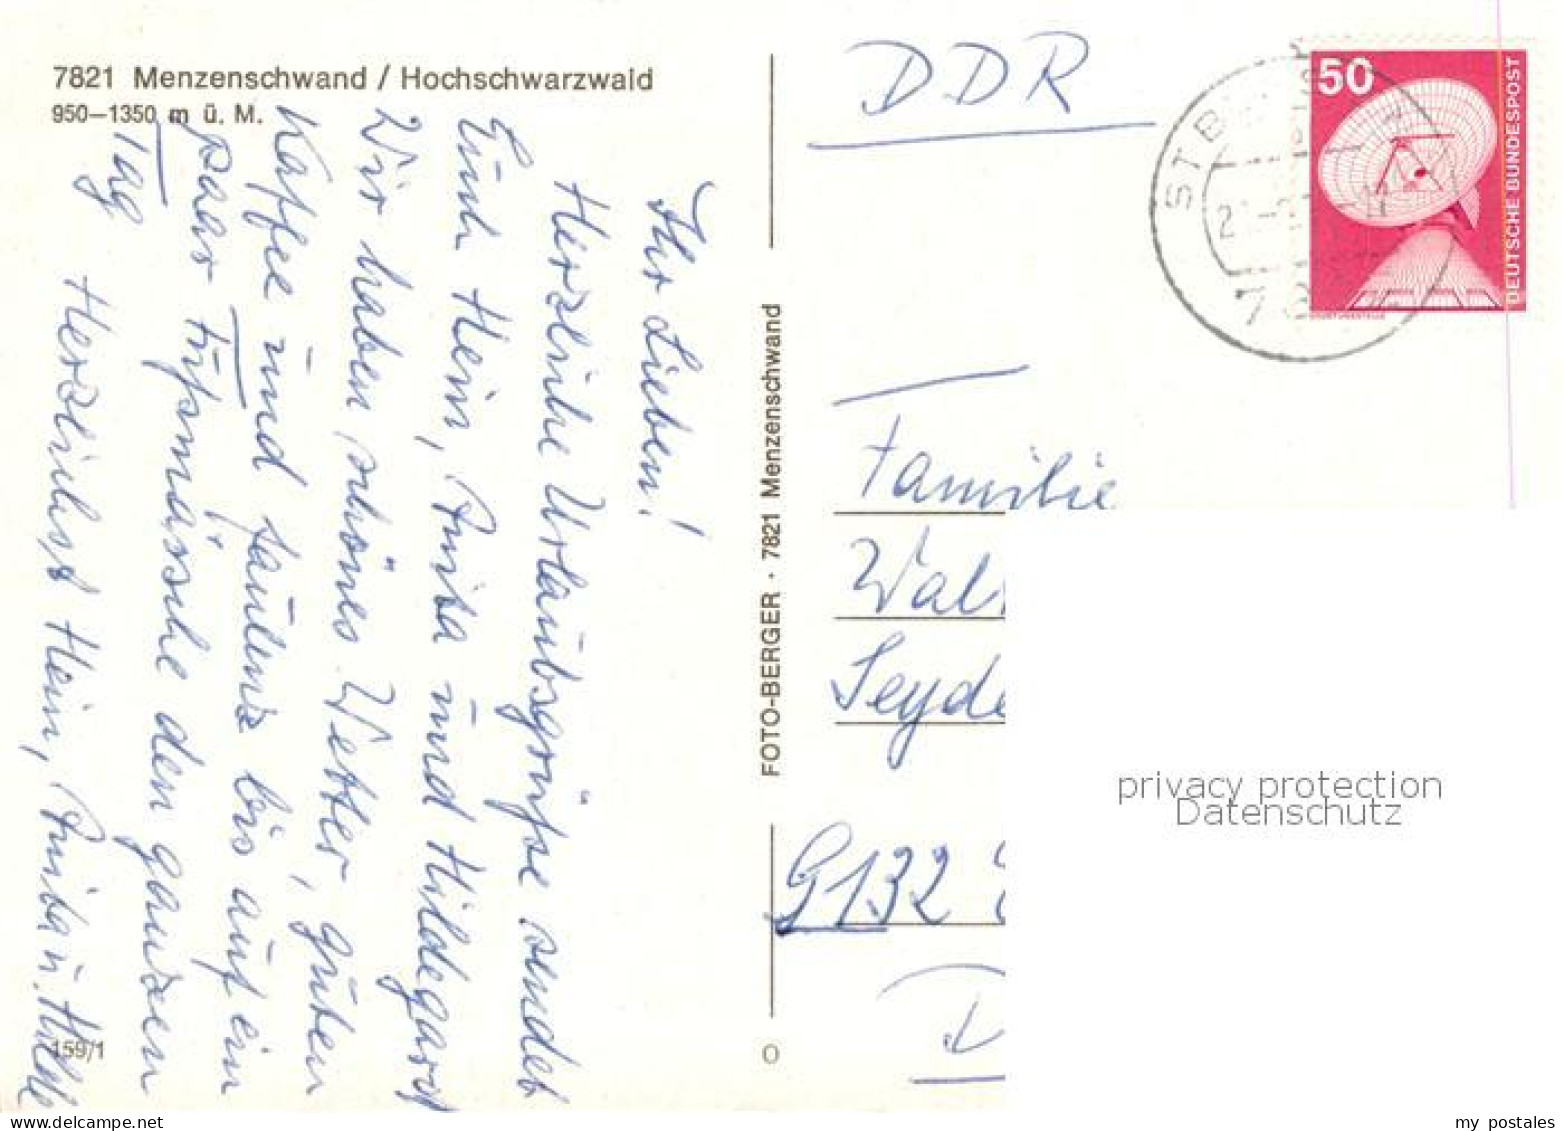 7821 Menzenschwand / Hochschwarzwald
950–1350 m ü. M.
Ihr Lieben!
Herzliche Urlaubsgrüße sendet
Euch Hein, Anita und Hildegard
Wir haben schönes Wetter, guten
Kaffee und faulenz bis auf ein
paar Fußmärsche den ganzen
Tag
Herzlichst Hein, Anita u. Hilde
159/1
FOTO-BERGER · 7821 Menzenschwand
DDR
50
DEUTSCHE BUNDESPOST
ST B
Familie
Seyde
6132
D
privacy protection
Datenschutz
www.delcampe.net
my postales